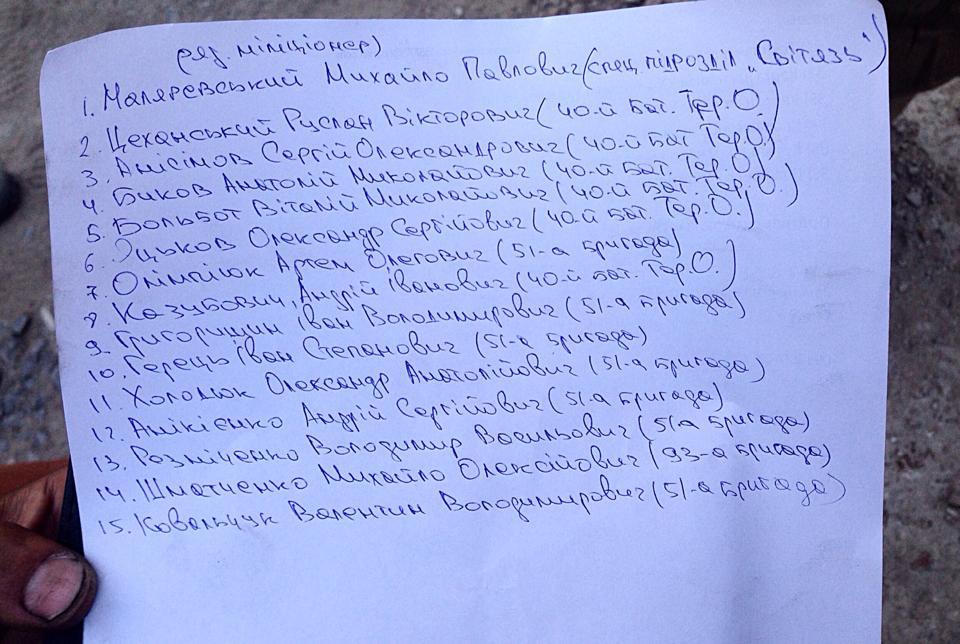 (ряд. міліціонер)
1. Маляревський Михайло Павлович (спец. підрозділ „Світязь")
2. Цеханський Руслан Вікторович (40-й Бат. Тер. О.)
3. Анісімов Сергій Олександрович (40-й Бат. Тер.О.)
4. Биков Анатолій Миколайович (40-й Бат. Тер.О.)
5. Больбот Віталій Миколайович (40-й Бат. Тер. О.)
6. Олександр Сергійович (40-й Бат. Тер.О.)
7. Оліміюк Артем Олегович (51-а Бригада)
8. Казубович Андрій Іванович (40-й Бат. Тер.О.)
9. Григоришин Іван Володимирович (51-а Бригада)
10. Герець Іван Степанович (51-а Бригада)
11. Холодюк Олександр Анатолійович (51-а Бригада)
12. Анікієнко Андрій Сергійович (51-а Бригада)
13. Розніченко Володимир Васильович (51а Бригада)
14. Шматченко Михайло Олексійович (93-а Бригада)
15. Ковальчук Валентин Володимирович (51-а Бригада)